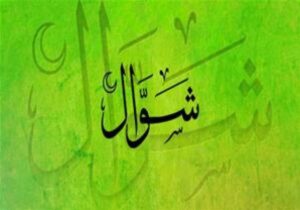 شَوَّال